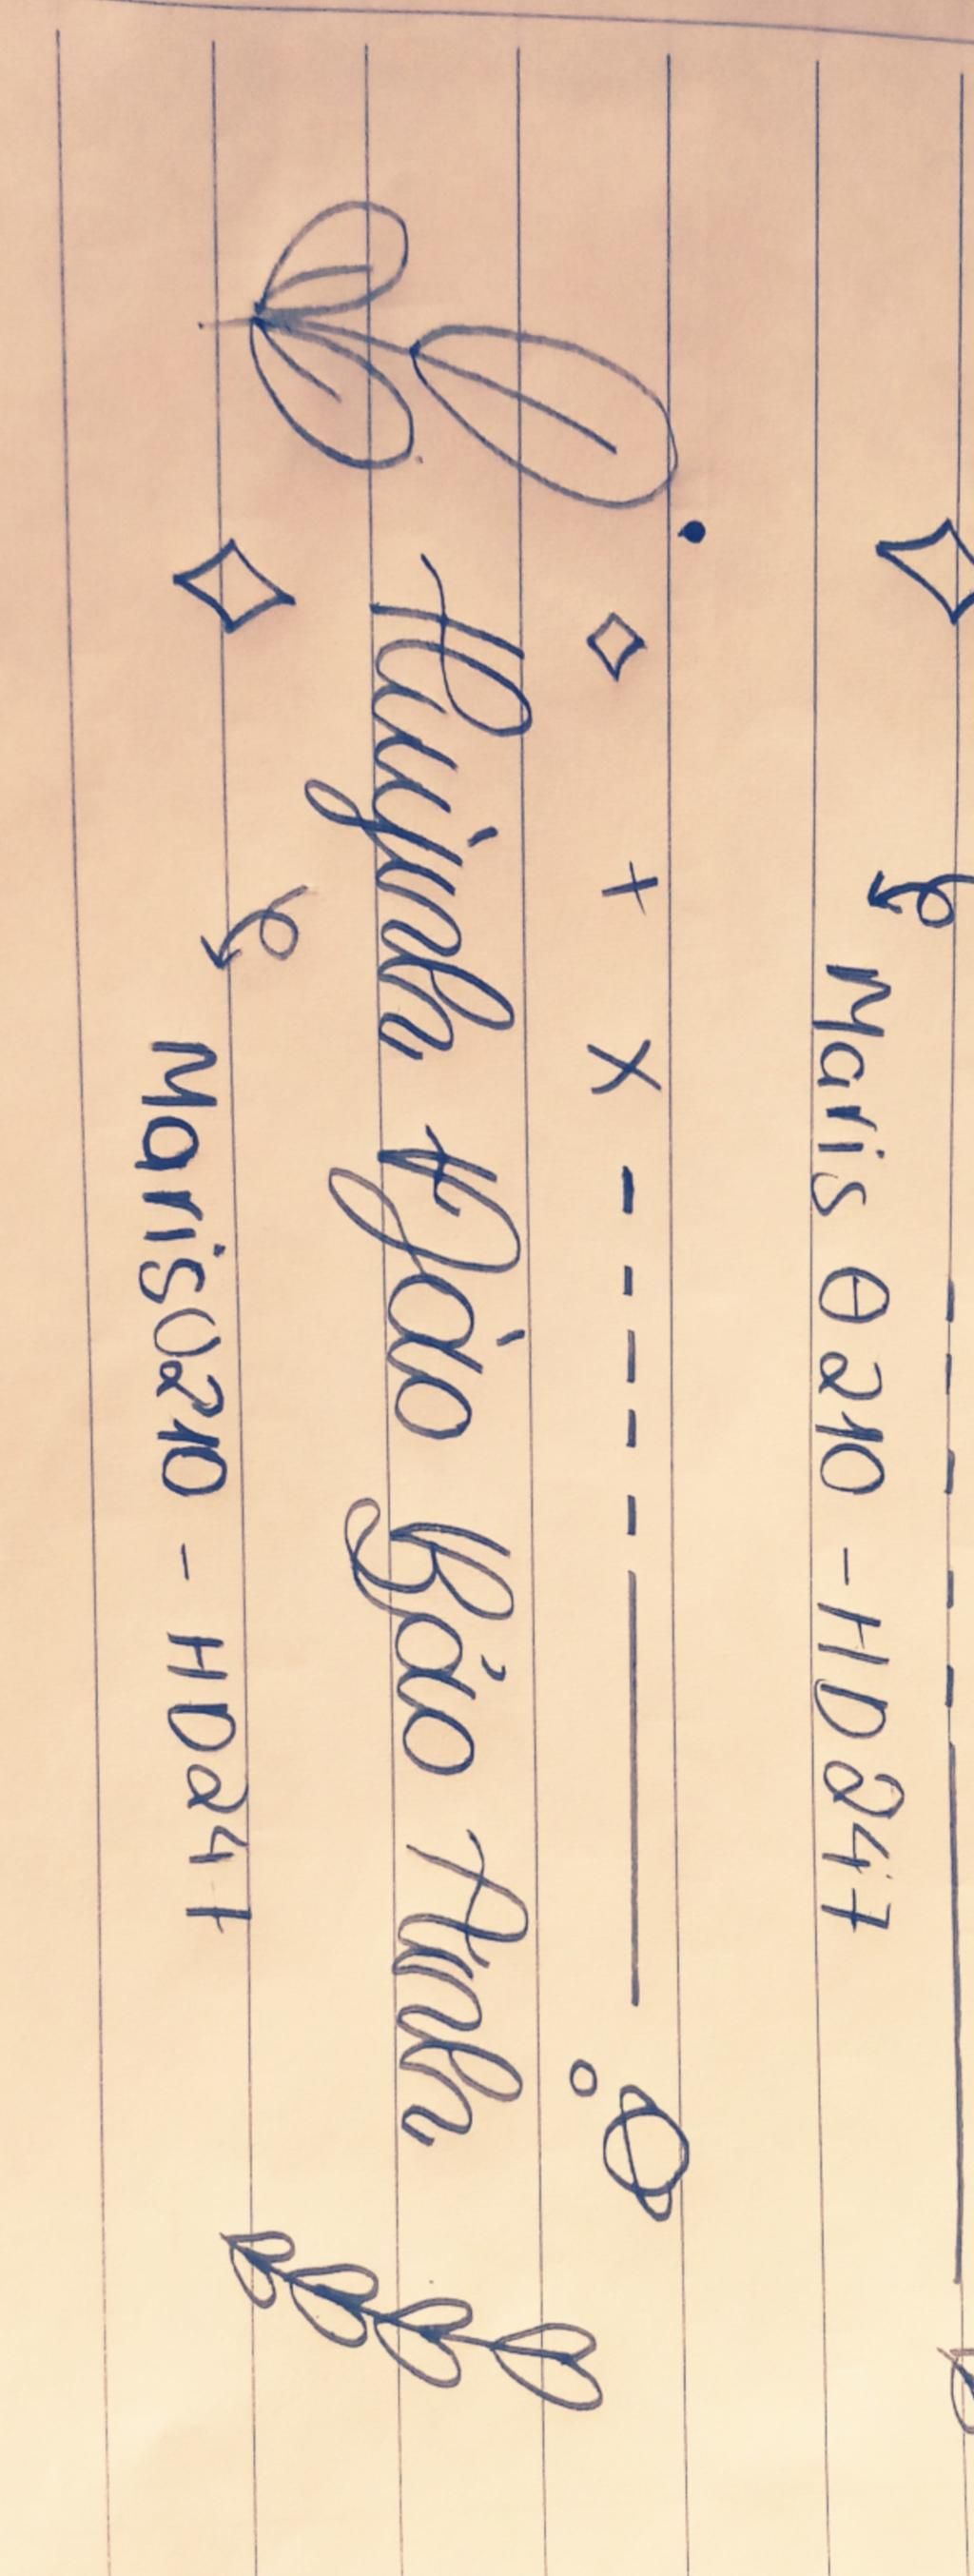 Maris 0210 - HD247
Huỳnh Đào Bảo Anh
Maris0210 - HD247